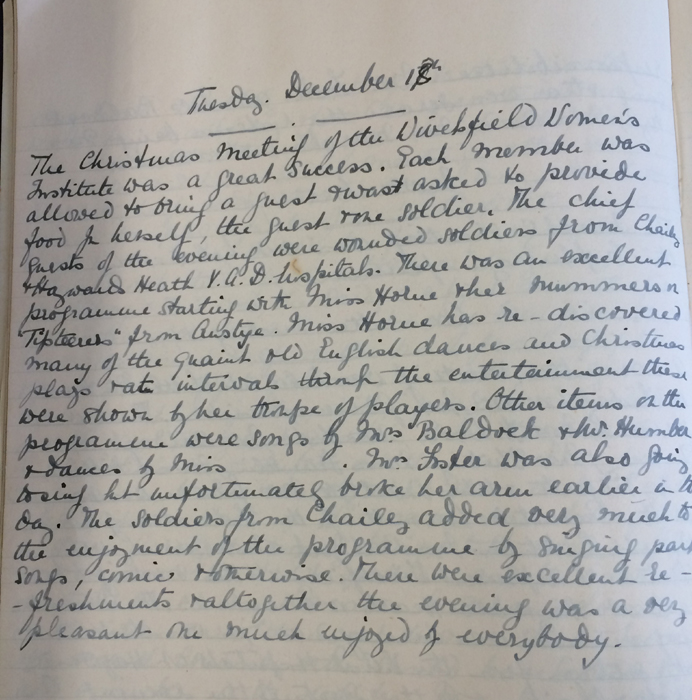 Tuesday. December 18th
The Christmas Meeting of the Wivelsfield Women's
Institute was a great success. Each member was
allowed to bring a guest & was asked to provide
food for herself, the guest & one soldier. The chief
guests of the evening were wounded soldiers from Chailey
& Haywards Heath V.A.D. hospitals. There was an excellent
programme starting with Miss Horne & her mummers or
"Tipteerers" from Anstye. Miss Horne has re-discovered
many of the quaint old English dances and Christmas
plays & at intervals through the entertainment these
were shown by her troupe of players. Other items on the
programme were songs by Mrs Baldock & Mr. Humber
& dances by Miss . Mrs Foster was also going
to sing but unfortunately broke her arm earlier in the
day. The soldiers from Chailey added very much to
the enjoyment of the programme by singing part
songs, comic & otherwise. There were excellent re-
-freshments & altogether the evening was a very
pleasant one much enjoyed by everybody.